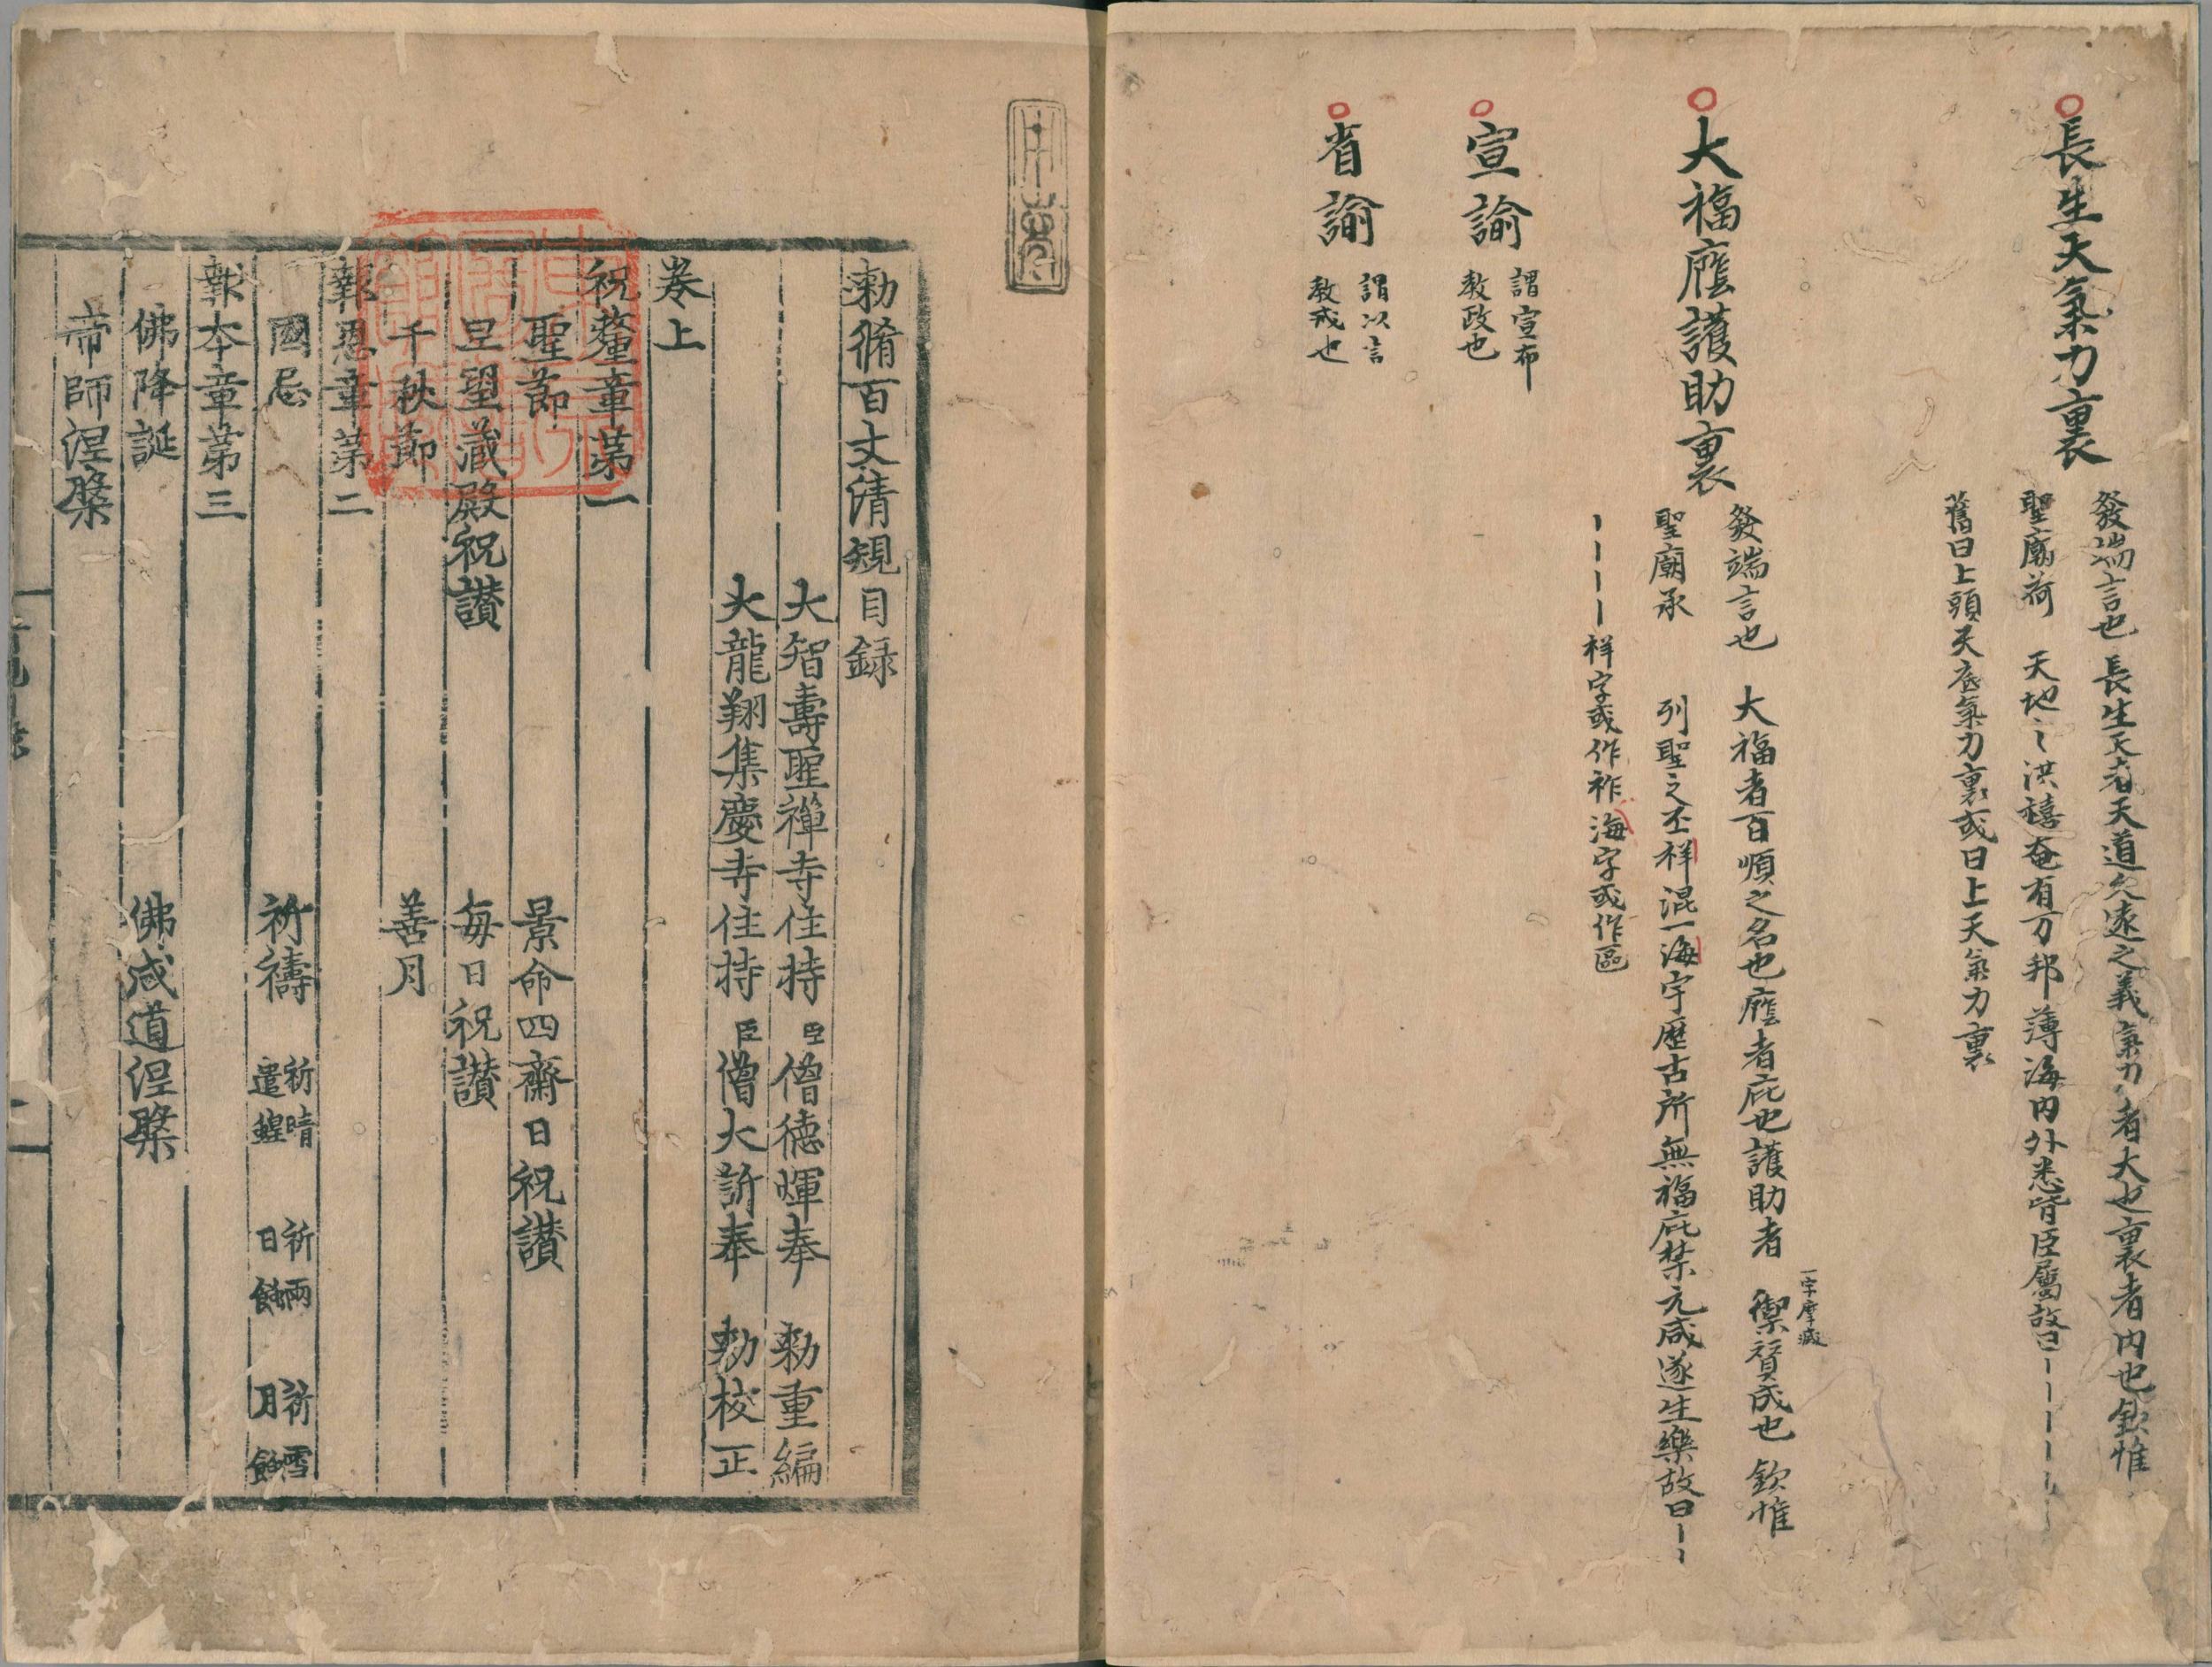 長生天氣力裏
發端言也 長生天者天道久遠之義氣力者大也裏者内也欽惟
聖廟荷 天地之洪禧奄有万邦薄海内外悉皆臣屬故曰
舊曰上頭天底氣力裏或曰上天氣力裏
大福廕護助裏
發端言也 大福者百順之名也廕者庇也護助者 禦賛成也 欽惟
一字摩滅
聖廟承 列聖之丕祥混一海宇歷古所無福庇禁元咸遂生樂故曰
祥字或作祚海字或作區
宣諭
謂宣布
教政也
省諭
謂以言
教戒也
勑脩百丈清規目録
大智壽聖禪寺住持臣僧德煇奉 勑重編
大龍翔集慶寺住持臣僧大訢奉 勑校正
卷上
祝釐章第一
聖節 景命四齋日祝讃
旦望藏殿祝讃 每日祝讃
千秋節 善月
報恩章第二
國忌 祈禱 祈晴 祈雨 祈雪
遣蝗 日蝕 月蝕
報本章第三
佛降誕 佛成道涅槃
帝師涅槃